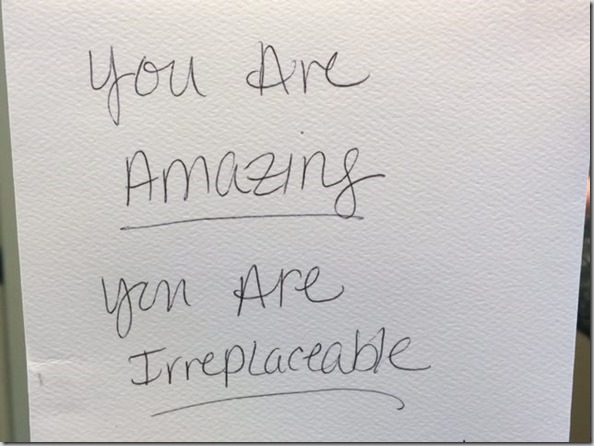 You Are
Amazing
You Are
Irreplaceable